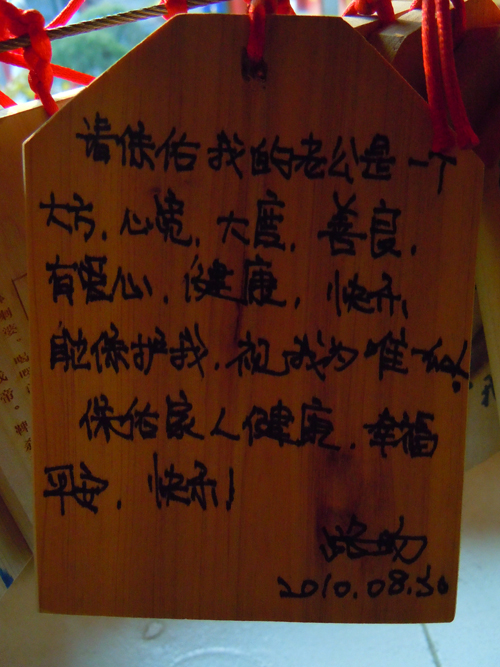 请保佑我的老公是一个
大方.心宽.大度.善良.
有爱心.健康.快乐,
能保护我.视我为唯一.
保佑家人健康.幸福
平安.快乐!
2010.08.30